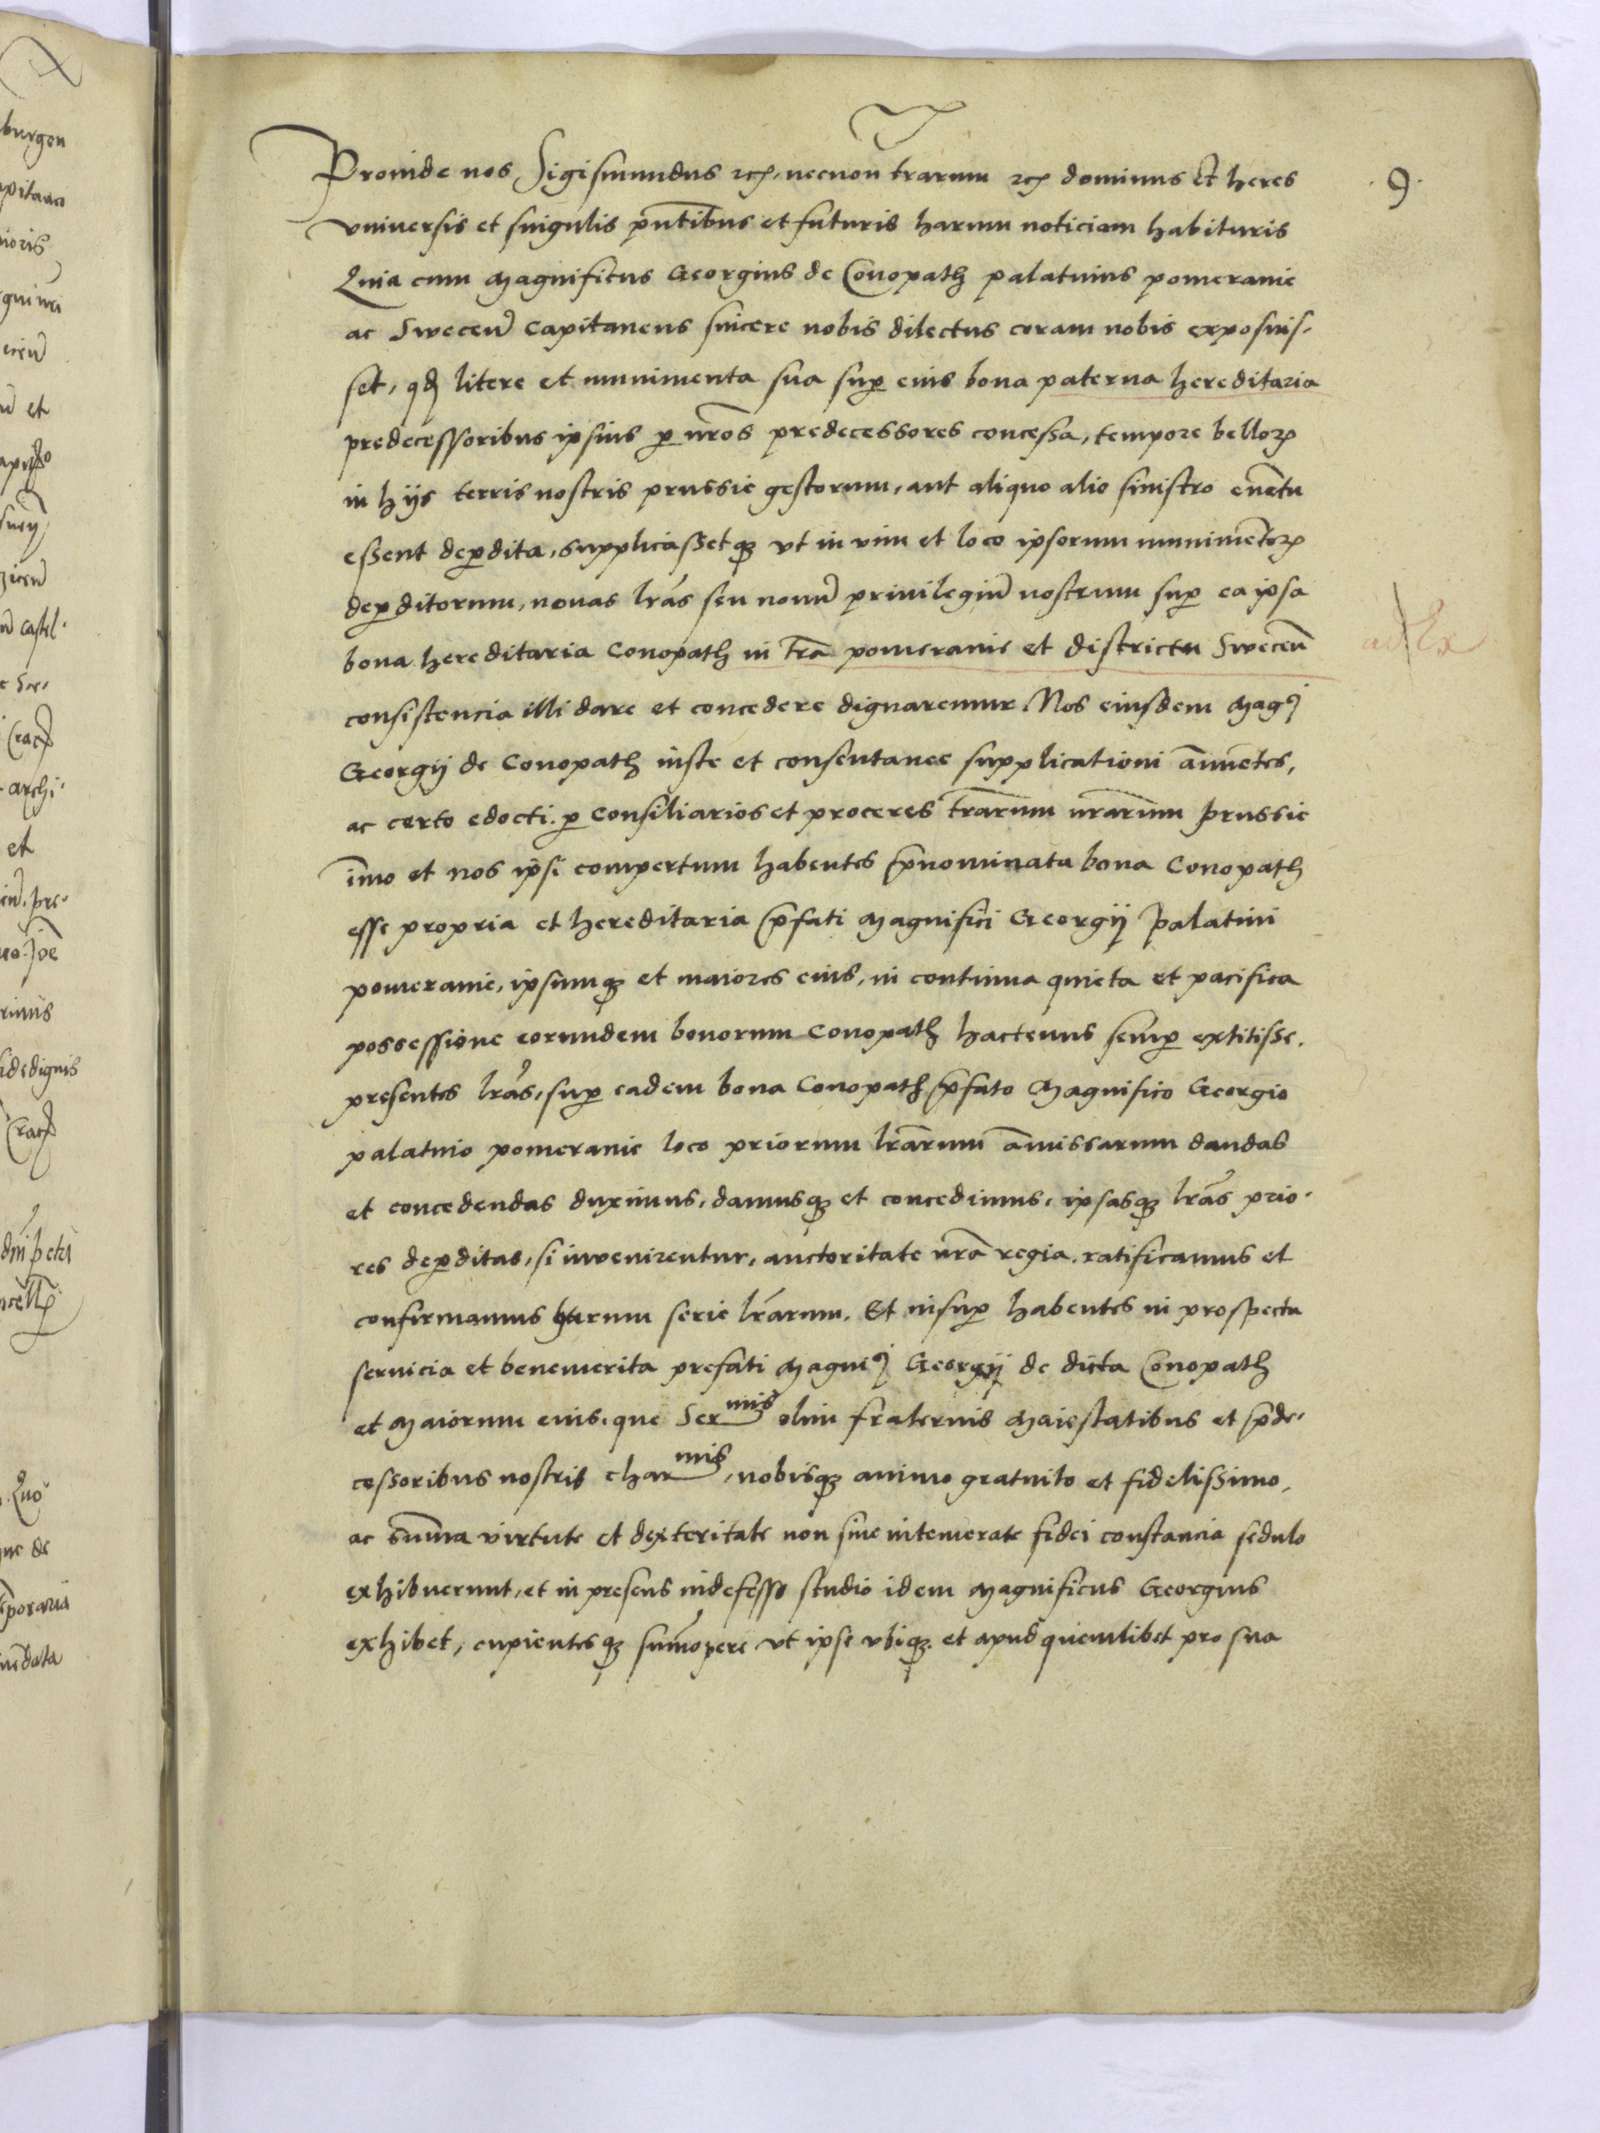 9
Proinde nos Sigismundus etc. necnon trarum etc dominus Et heres
vniuersis et singulis pntibus et futuris harum noticiam habituris
Quia cum Magnificus Georgius de Conopath palatinus pomeranie
ac Swecen Capitaneus sincere nobis dilectus coram nobis exposuis-
set, qd litere et munimenta sua sup eius bona paterna hereditaria
predecessoribus ipsius p nros predecessores concessa, tempore bellor
in hijs terris nostris prussie gestorum, aut aliquo alio sinistro euetu
essent depdita, supplicassetq vt in vim et loco ipsorum munimetor
depditorum, nouas lras seu nouu priuilegiu nostrum sup ea ipsa
bona hereditaria Conopath in tra pomeranie et districtu Swecen
consistencia illi dare et concedere dignaremur. Nos eiusdem Magci
Georgij de Conopath iuste et consentanee supplicationi annuetes,
ac certo edocti p Consiliarios et proceres trarum nrarum prussie
imo et nos ipsi compertum habentes pnominata bona Conopath
esse propria et hereditaria pfati Magnifici Georgij palatini
pomeranie, ipsumq et maiores eius, in continua quieta et pacifica
possessione eorundem bonorum Conopath hactenus semp extitisse.
presentes lras, sup eadem bona Conopath pfato Magnifico Georgio
palatino pomeranie loco priorum lrarum amissarum dandas
et concedendas duximus, damusq et concedimus, ipsasq lras prio-
res depditas, si inuenirentur, auctoritate nra regia ratificamus et
confirmamus harum serie lrarum. Et insup habentes in prospectu
seruicia et benemerita prefati Magnici Georgij de dicta Conopath
et Maiorum eius, que Sermis olim fraternis Maiestatibus et pde-
cessoribus nostris charmis, nobisq animo gratuito et fidelissimo,
ac suma virtute et dexteritate non sine intemerate fidei constancia sedulo
exhibuerunt, et in presens indefesso studio idem Magnificus Georgius
exhibet, cupientesq sumopere vt ipse vbiq et apud quemlibet pro sua